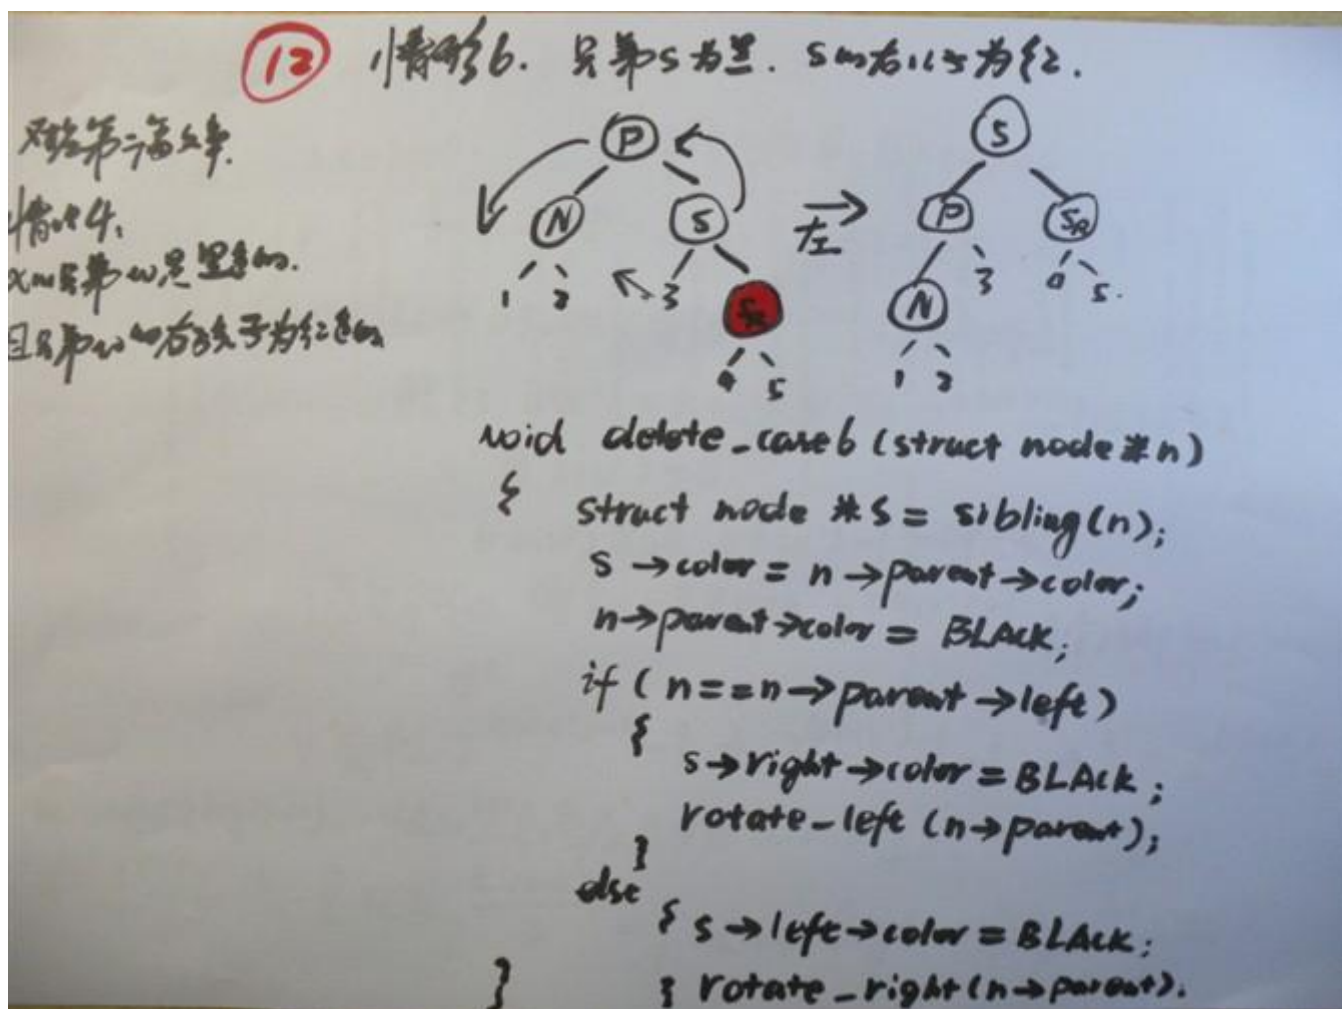 12 情形6. 兄弟S为黑. S的右儿子为红.
对应第二篇文章.
情况4.
x的兄弟w是黑色的.
且兄弟w的右孩子为红色的
P S
N S 左 P SR
1 2 3 SR N 3 4 5.
4 5 1 2
void delete_case6 (struct node *n)
{
struct node *S = sibling(n);
s → color = n → parent → color;
n → parent → color = BLACK;
if ( n == n → parent → left )
{
s → right → color = BLACK;
rotate_left (n → parent);
}
else
{ s → left → color = BLACK;
} } rotate_right (n → parent).